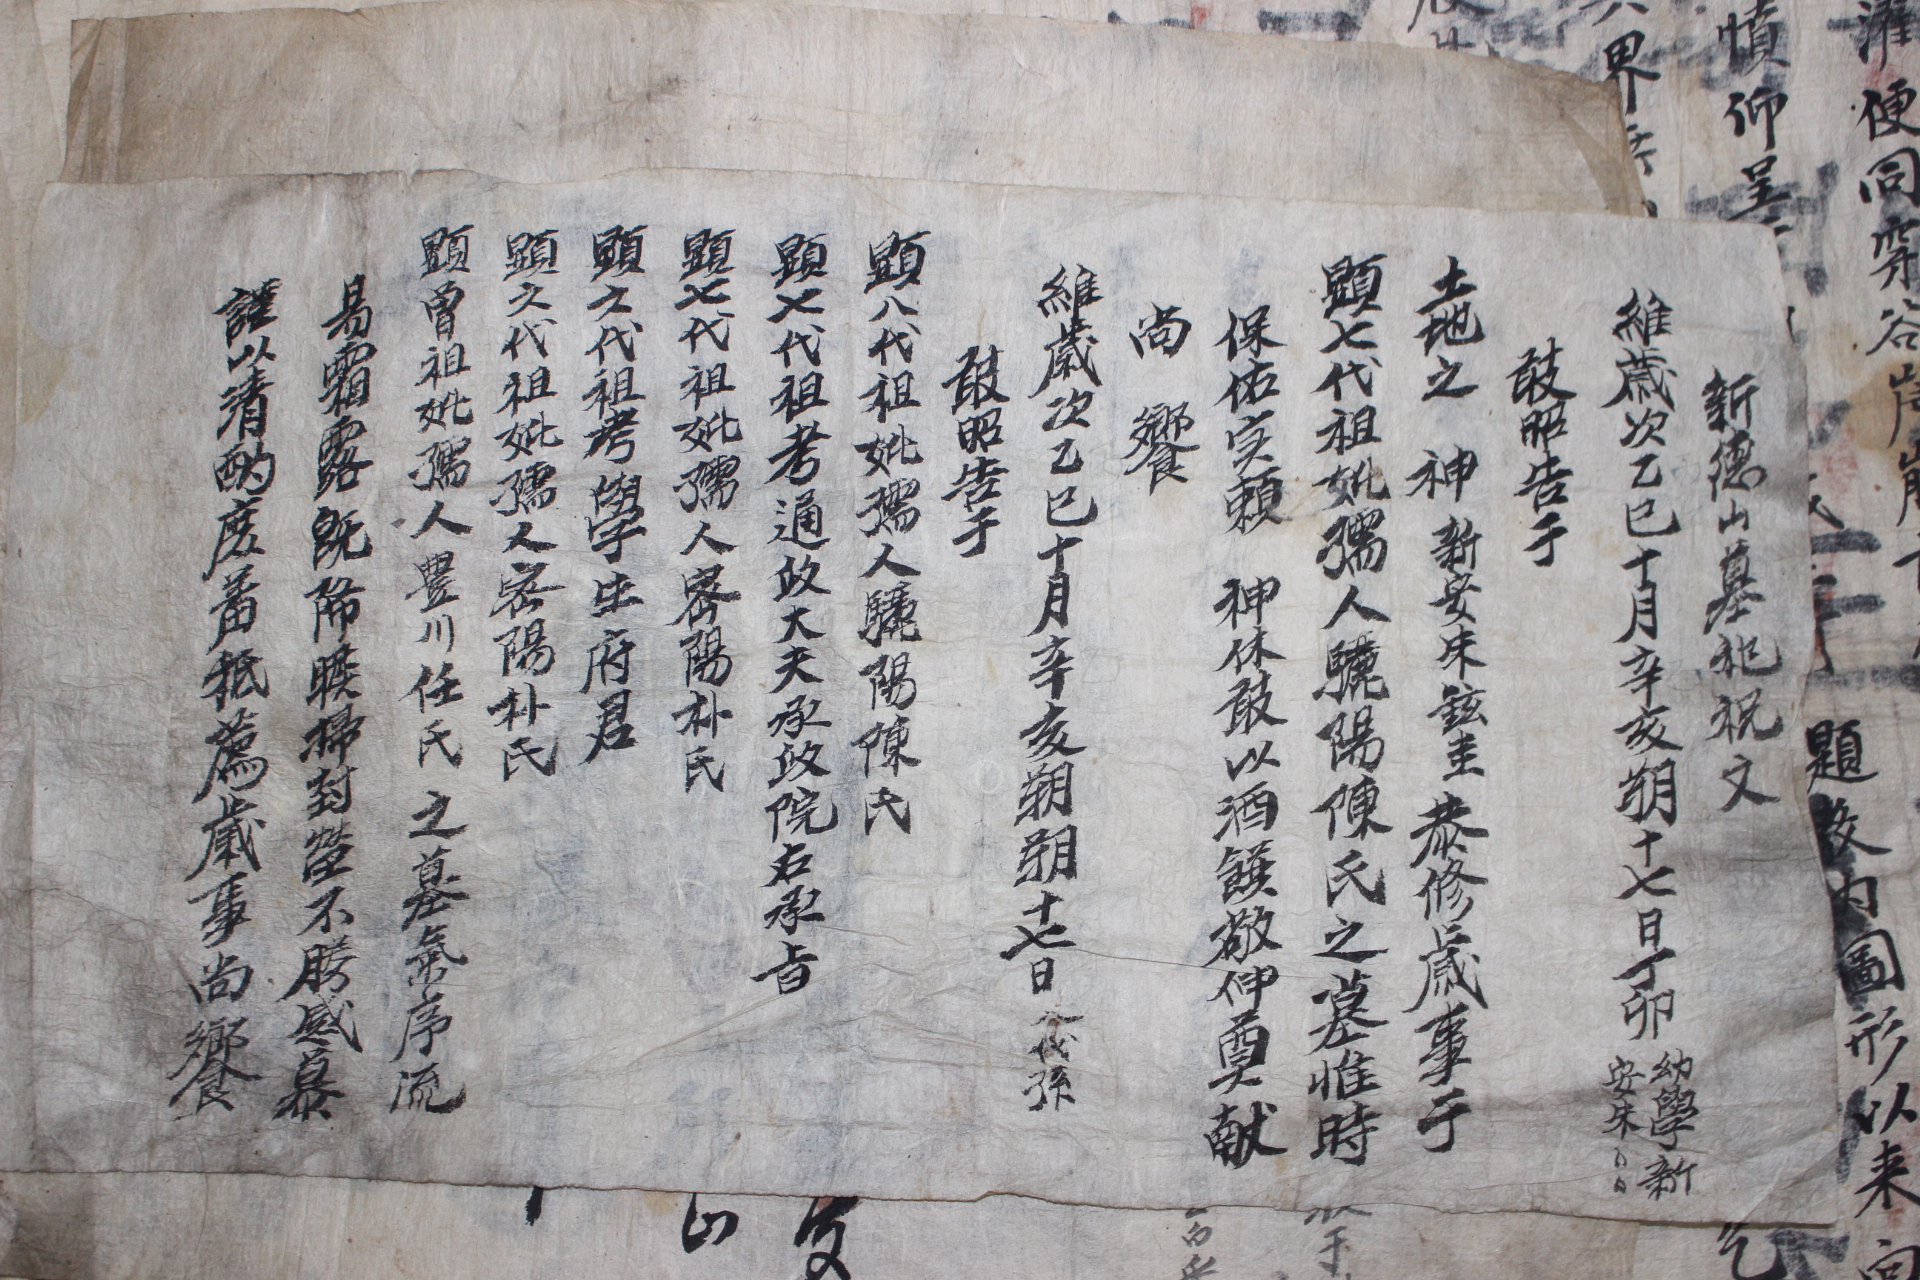 新德山墓祀祝文
維歲次乙巳十月辛亥朔十七日丁卯 幼學新安朱
敢昭告于
土地之 神 新安朱鉉圭 恭修歲事于
顯七代祖妣孺人驪陽陳氏之墓惟時
保佑实賴 神休敢以酒饌敬伸奠献
尚 饗
維歲次乙巳十月辛亥朔朔十七日 八代孫
敢昭告于
顯八代祖妣孺人驪陽陳氏
顯七代祖考通政大夫承政院右承旨
顯七代祖妣孺人密陽朴氏
顯六代祖考學生府君
顯六代祖妣孺人密陽朴氏
顯曾祖妣孺人豊川任氏 之墓氣序流
易霜露旣降瞻掃封塋不勝感慕
謹以清酌庶羞祗薦歲事尚 饗
憤仰呈
灌便同穿谷
題
內圖形以来向